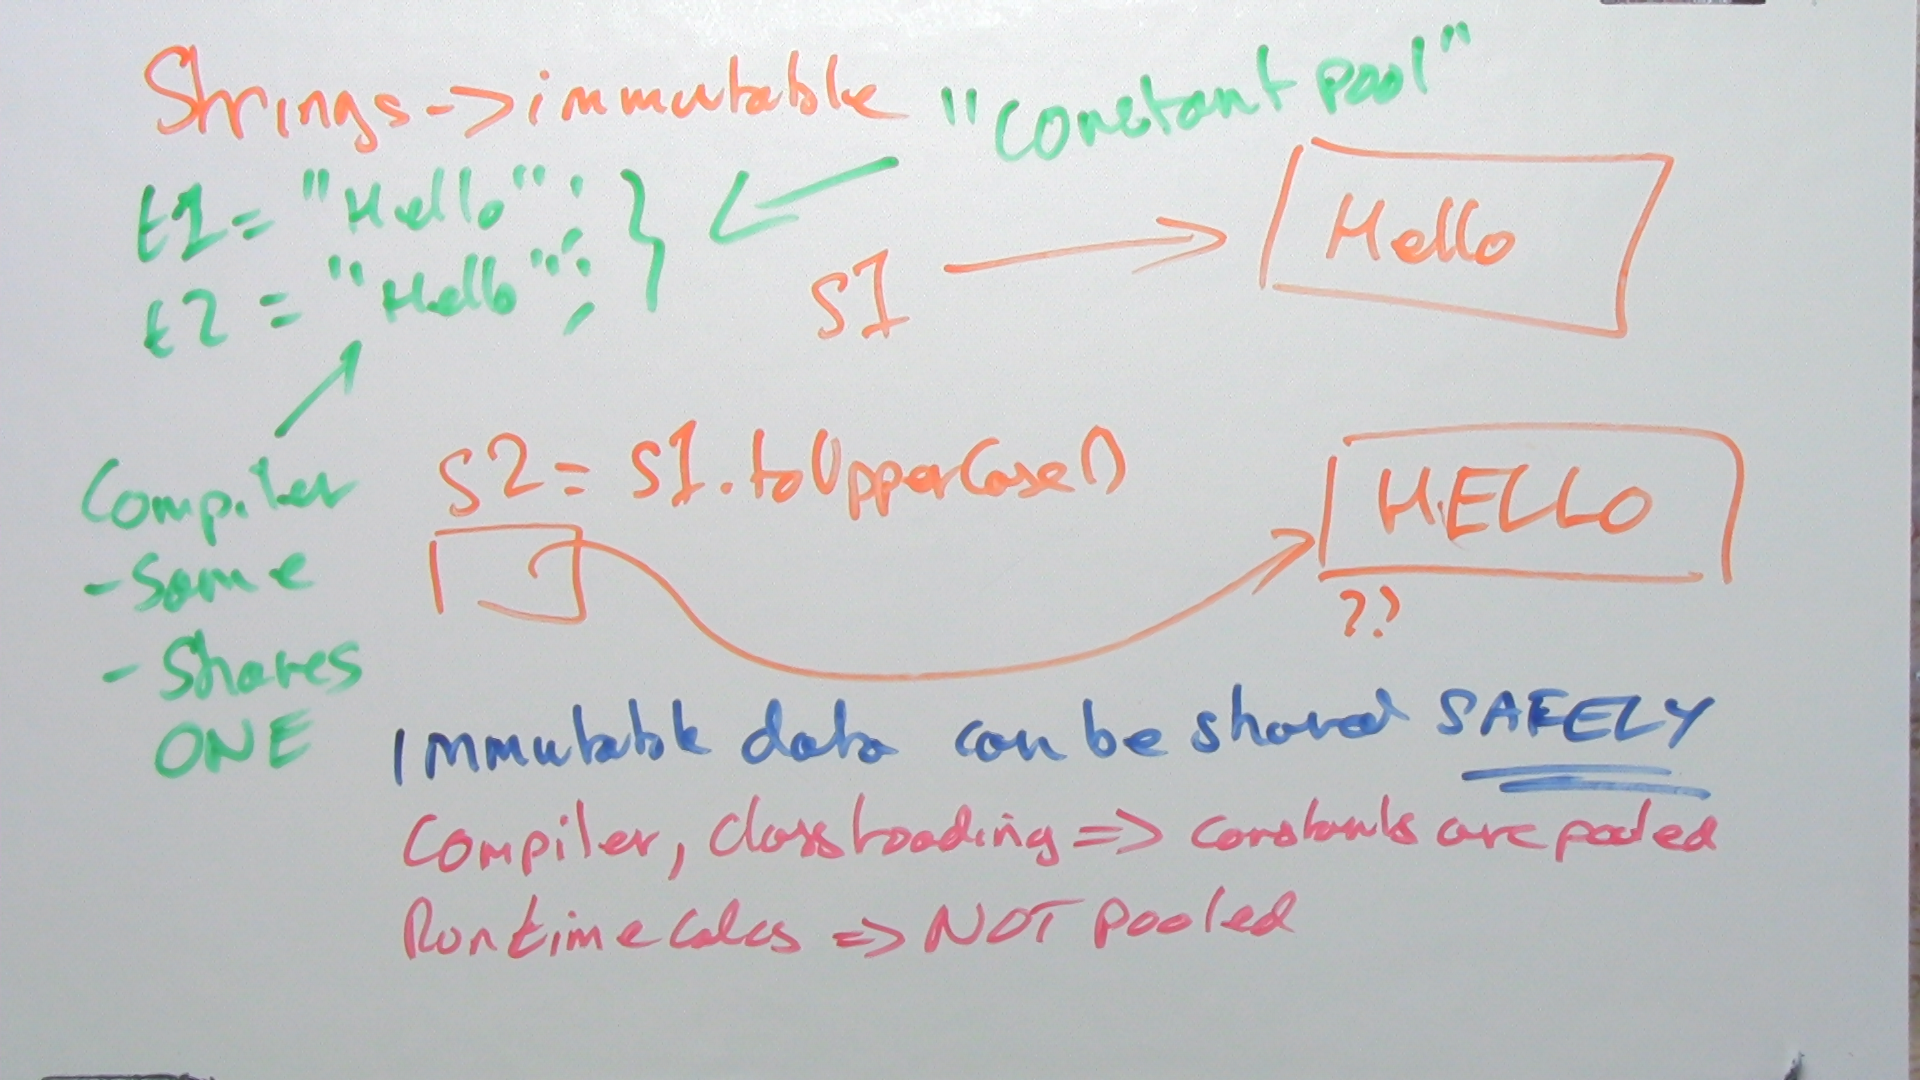 Strings -> immutable
"constant pool"
t1 = "Hello";
t2 = "Hello";
s1
Hello
Compiler
- Same
- Shares
ONE
s2 = s1.toUpperCase()
HELLO
??
Immutable data can be shared SAFELY
Compiler, class loading => constants are pooled
Runtime calcs => NOT pooled